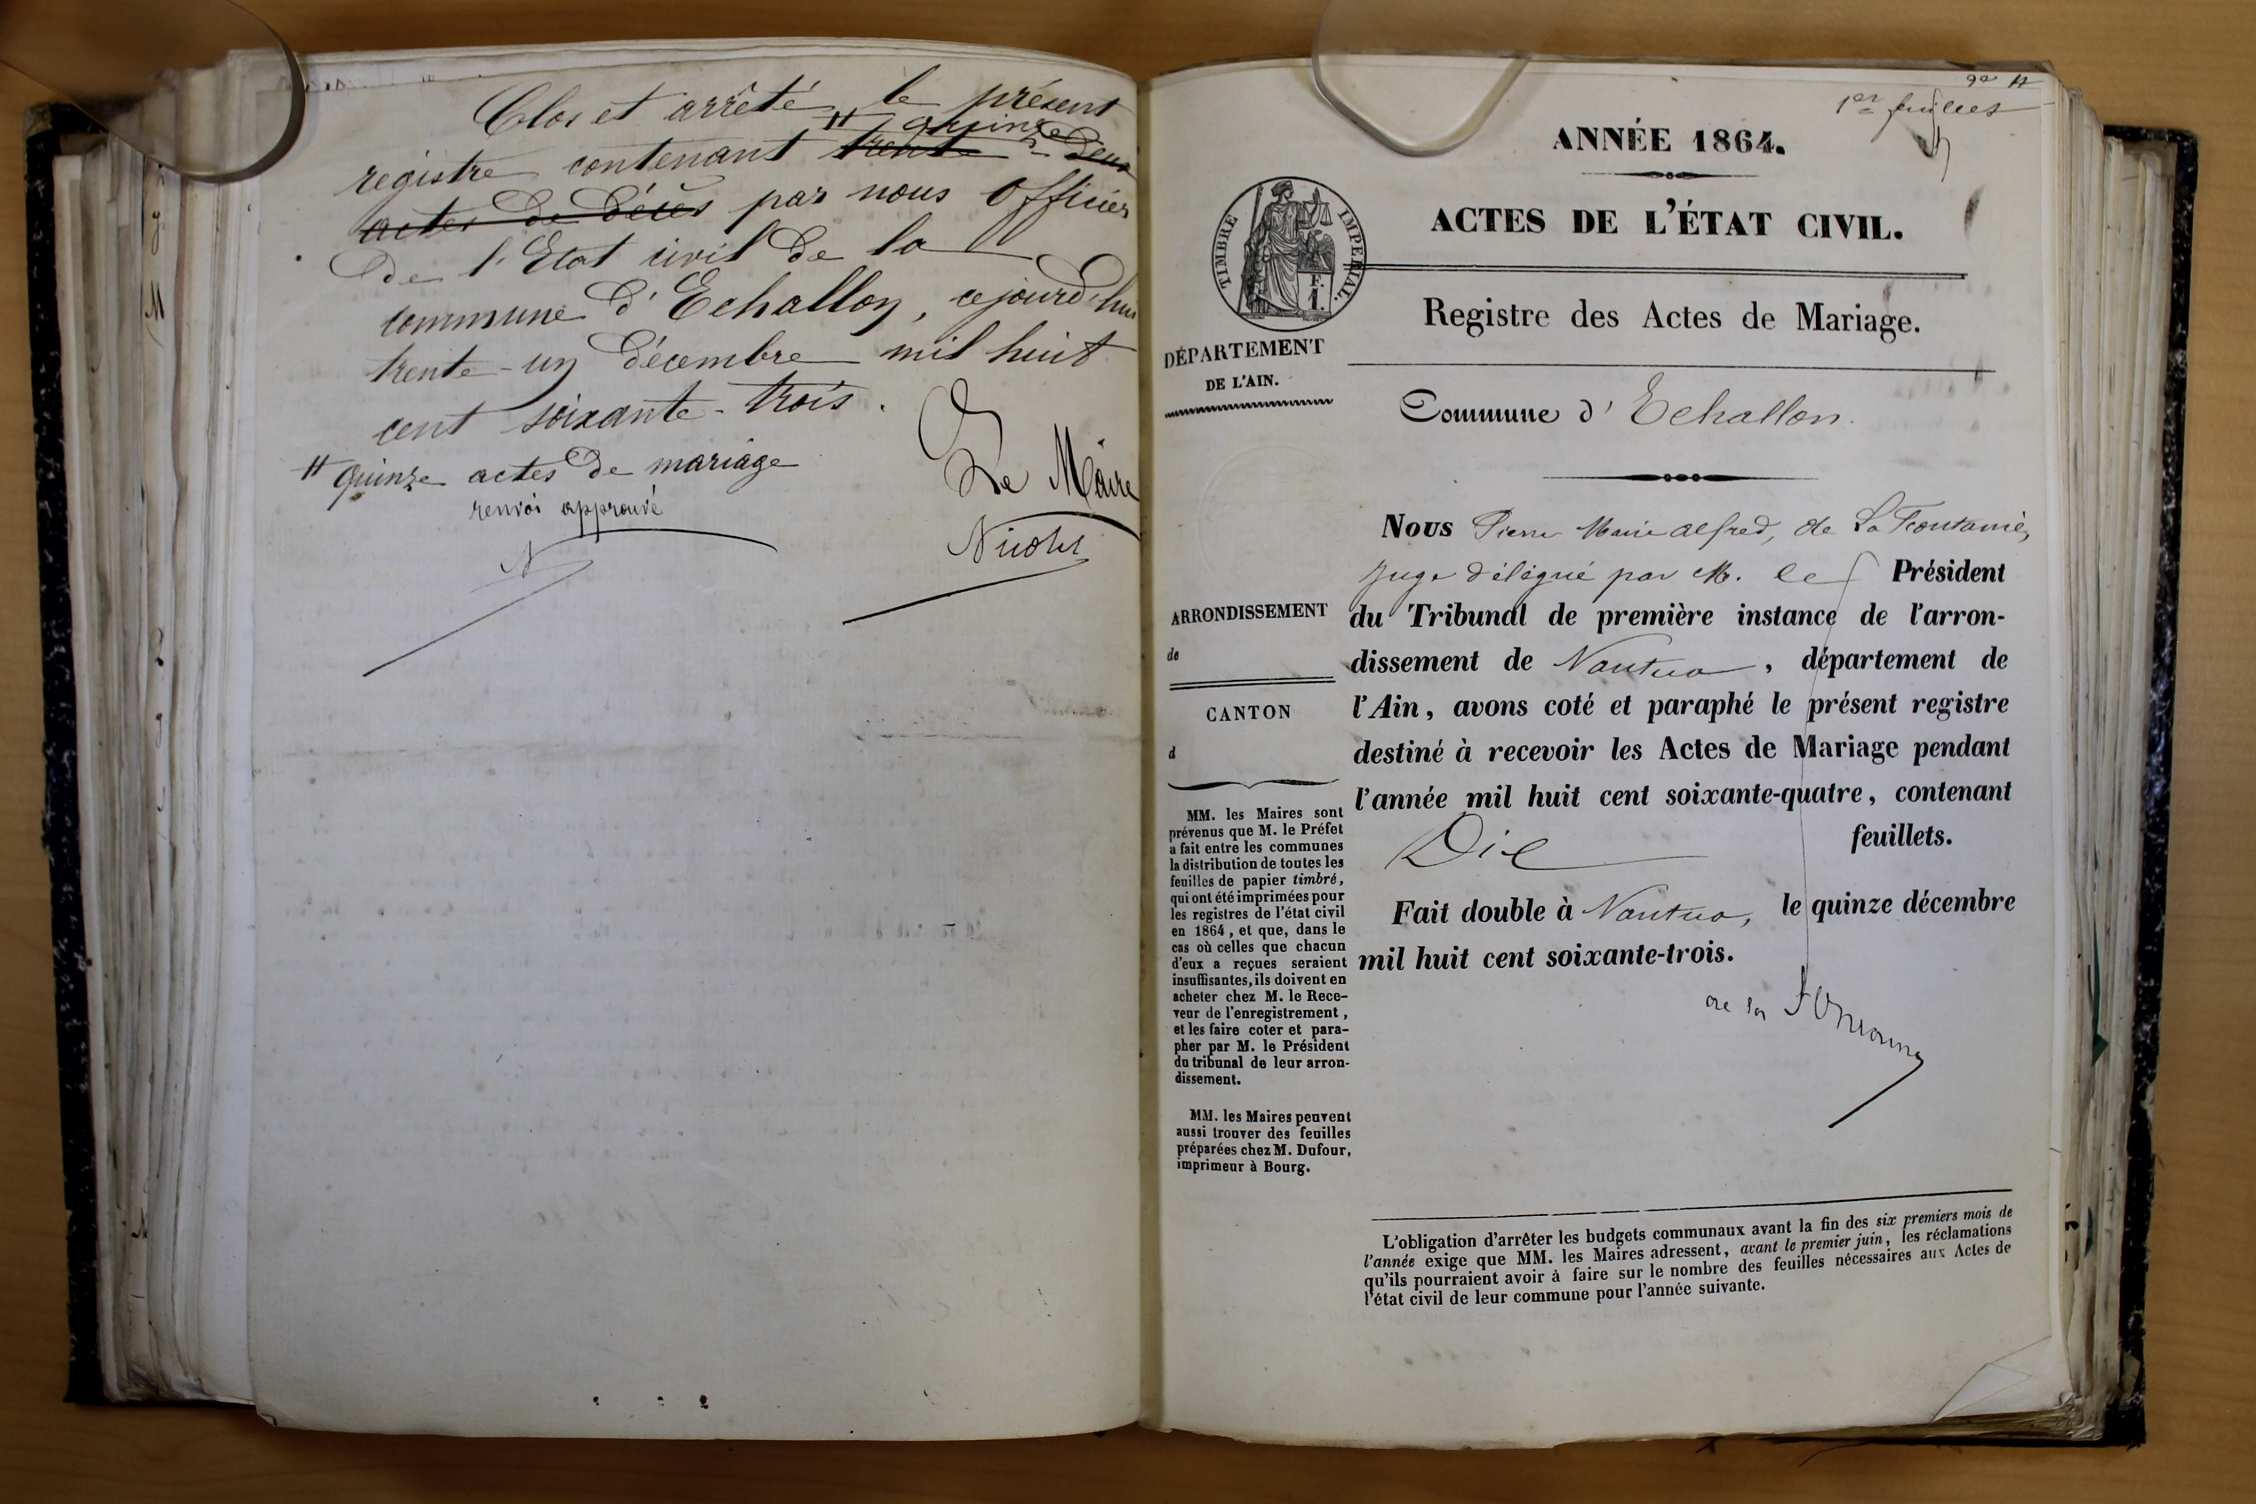 Clos et arrêté le présent
# quinze
registre contenant trente-deux
actes de décès par nous Officier
de l'Etat civil de la
commune d'Echallon, cejourd'hui
trente-un décembre mil huit
cent soixante-trois.
# quinze actes de mariage
renvoi approuvé
N
Le Maire
Nicolet
1er feuillet
ANNÉE 1864.
ACTES DE L'ÉTAT CIVIL.
TIMBRE IMPÉRIAL.
F.
1.
Registre des Actes de Mariage.
DÉPARTEMENT
DE L'AIN.
Commune d'Echallon.
ARRONDISSEMENT
de
CANTON
d
MM. les Maires sont
prévenus que M. le Préfet
a fait entre les communes
la distribution de toutes les
feuilles de papier timbré,
qui ont été imprimées pour
les registres de l'état civil
en 1864, et que, dans le
cas où celles que chacun
d'eux a reçues seraient
insuffisantes, ils doivent en
acheter chez M. le Rece-
veur de l'enregistrement,
et les faire coter et para-
pher par M. le Président
du tribunal de leur arron-
dissement.
MM. les Maires peuvent
aussi trouver des feuilles
préparées chez M. Dufour,
imprimeur à Bourg.
Nous Pierre Marie alfred, de La Fontaine,
juge délégué par M. le Président
du Tribunal de première instance de l'arron-
dissement de Nantua, département de
l'Ain, avons coté et paraphé le présent registre
destiné à recevoir les Actes de Mariage pendant
l'année mil huit cent soixante-quatre, contenant
Dix feuillets.
Fait double à Nantua, le quinze décembre
mil huit cent soixante-trois.
de la
L'obligation d'arrêter les budgets communaux avant la fin des six premiers mois de
l'année exige que MM. les Maires adressent, avant le premier juin, les réclamations
qu'ils pourraient avoir à faire sur le nombre des feuilles nécessaires aux Actes de
l'état civil de leur commune pour l'année suivante.